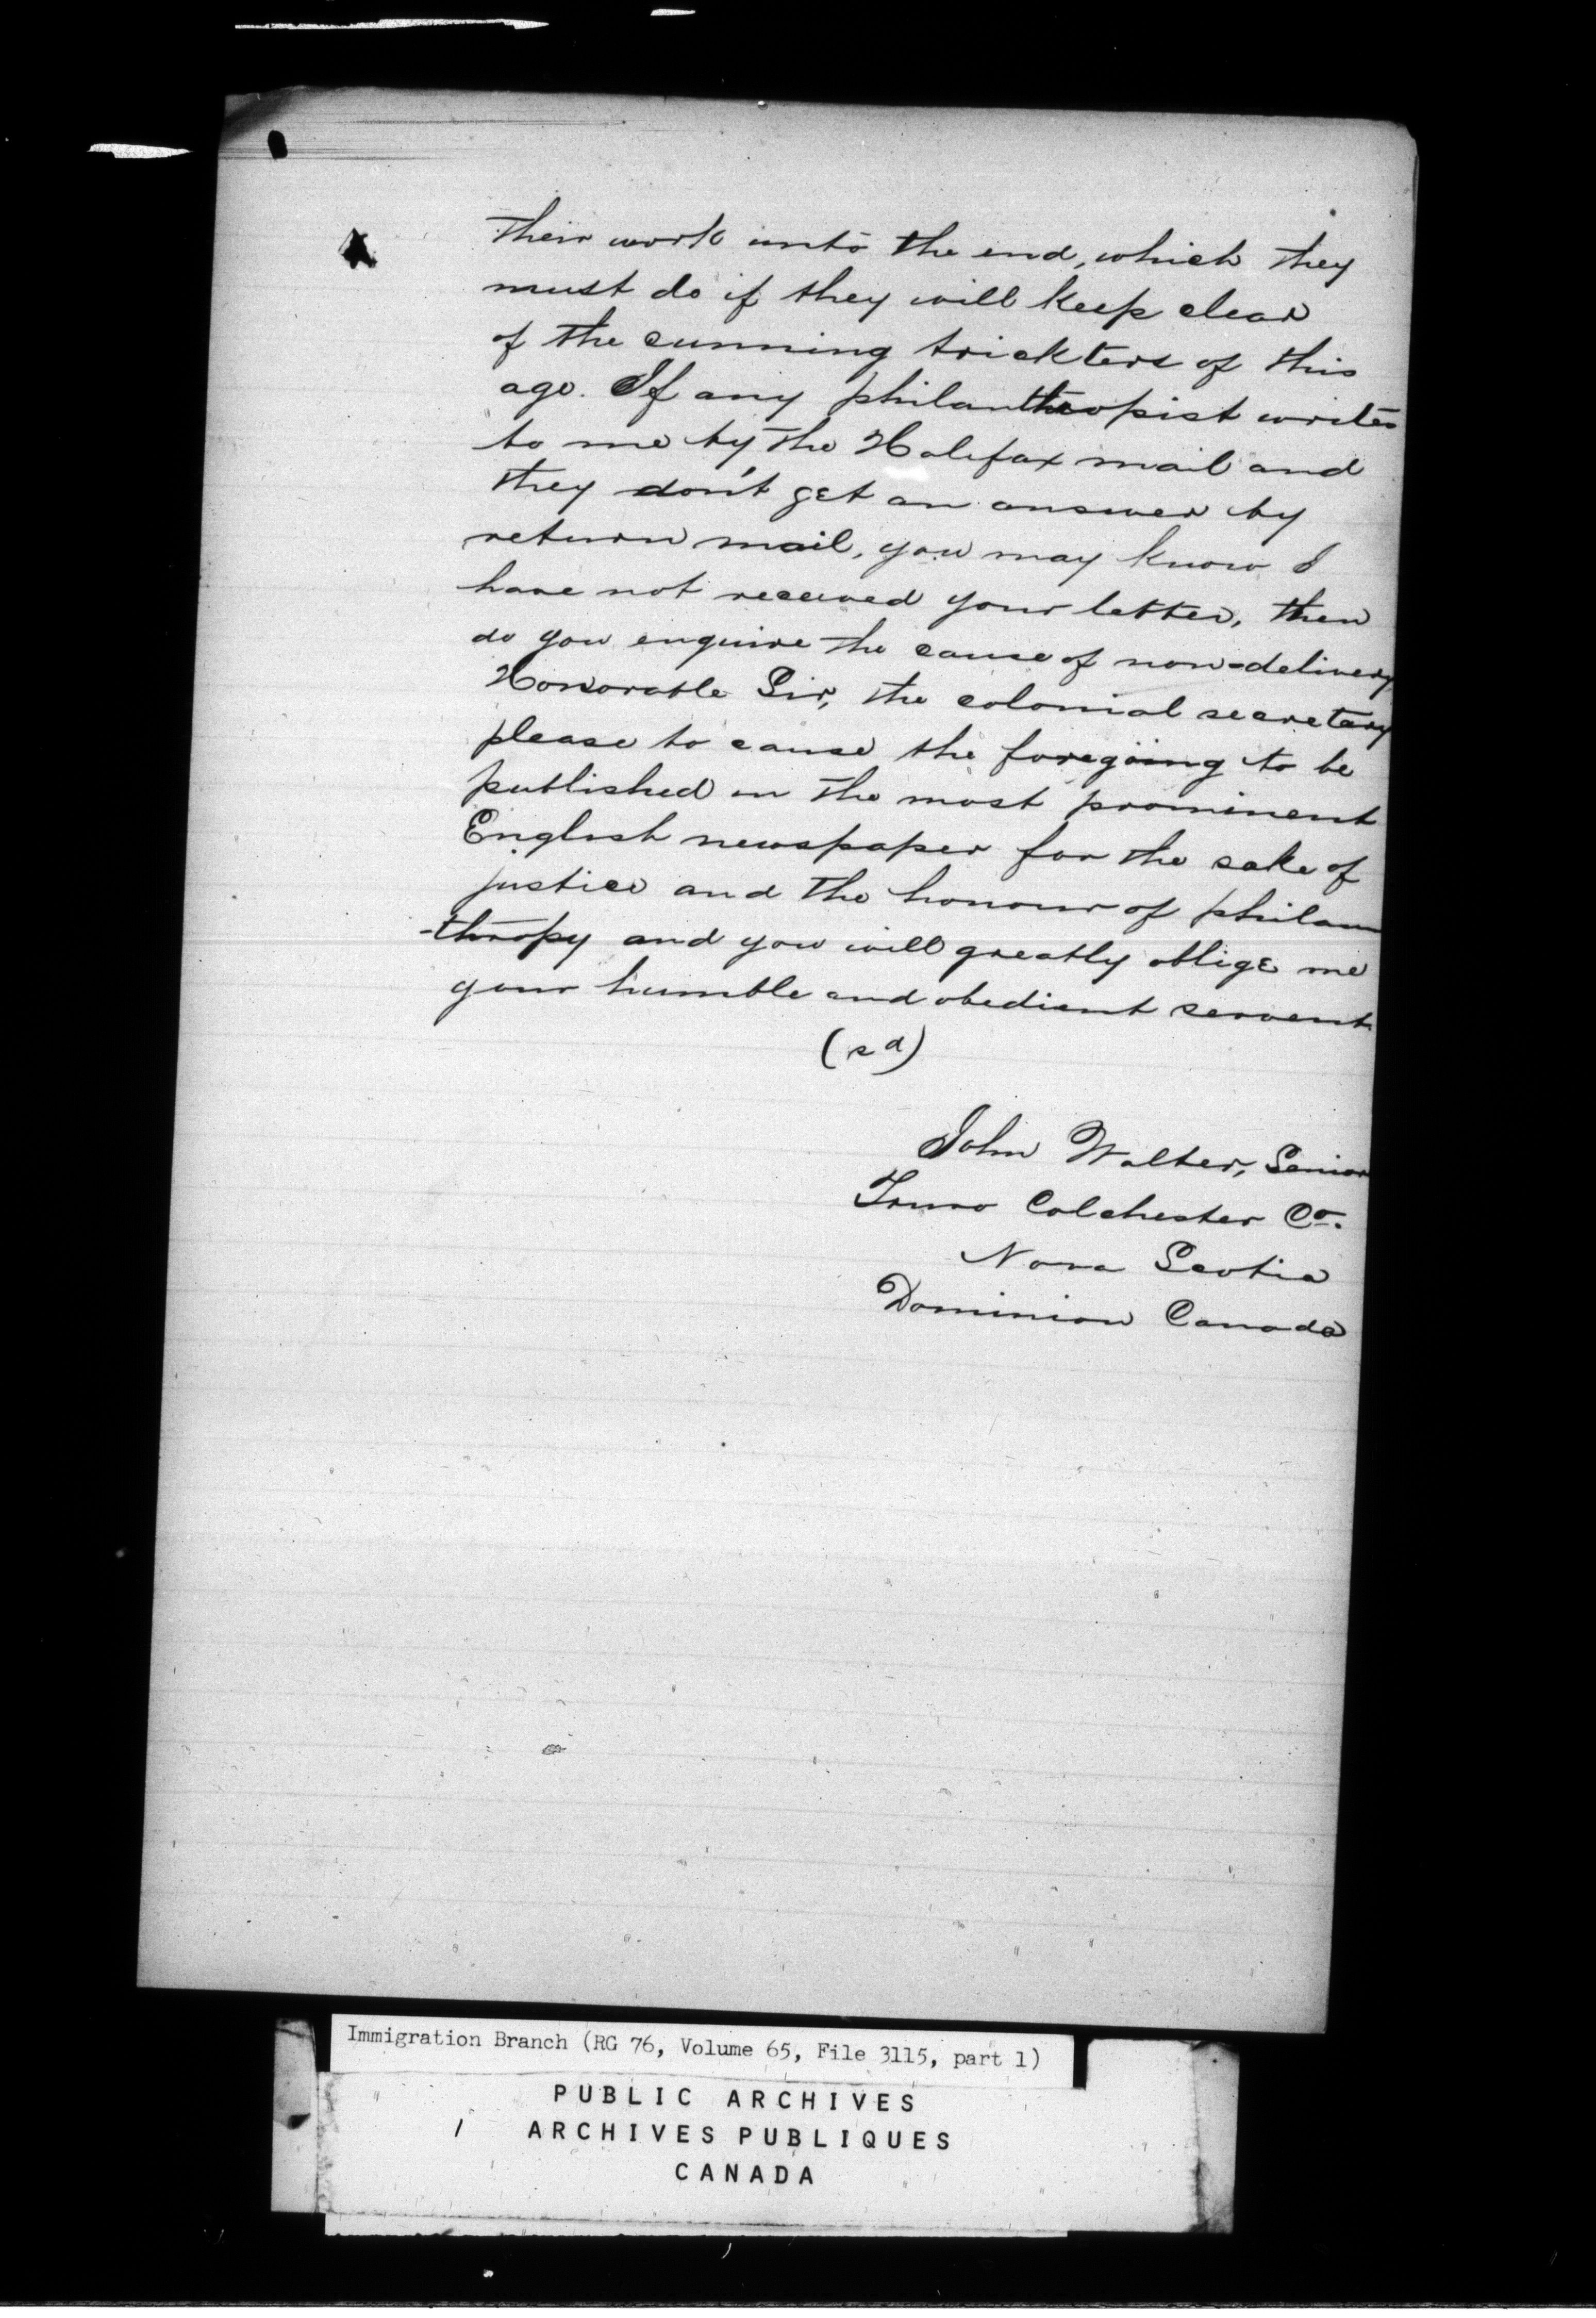 their work unto the end, which they
must do if they will keep clear
of the cunning trickters of this
age. If any philanthropist writes
to me by the Halifax mail and
they don't get an answer by
return mail, you may know I
have not received your letter, then
do you enquire the cause of non-delivery
Honorable Sir, the colonial secretary
please to cause the foregoing to be
published in the most prominent
English newspaper for the sake of
justice and the honour of philan
-thropy and you will greatly oblige me
your humble and obedient servent
(sd)
John Walter, Senior
Truro Colchester Co.
Nova Scotia
Dominion Canada
Immigration Branch (RG 76, Volume 65, File 3115, part 1)
PUBLIC ARCHIVES
ARCHIVES PUBLIQUES
CANADA